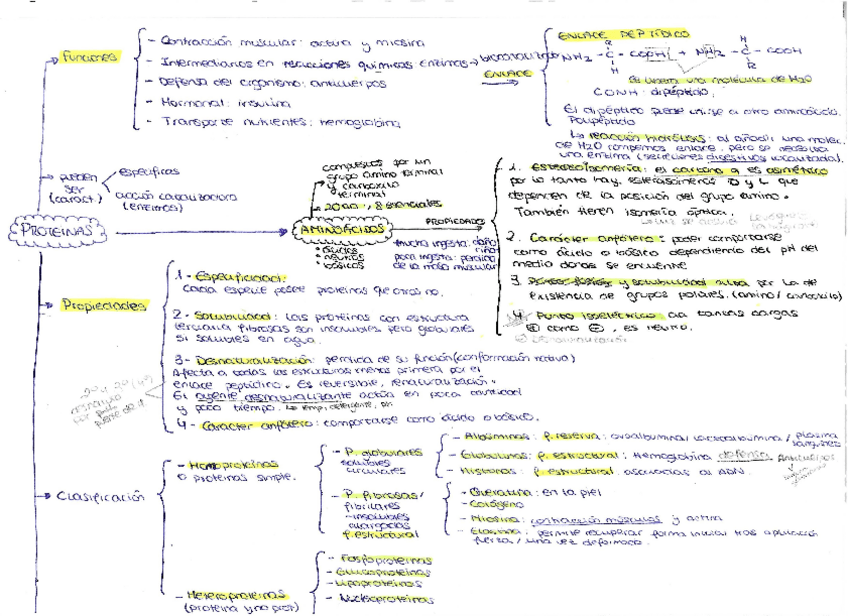 Funciones
- Contracción muscular: actina y miosina
- Intermediarios en reacciones químicas enzimas → biocatalizador
- Defensa del organismo: anticuerpos
- Hormonal: insulina
- Transporte nutrientes: hemoglobina
ENLACE
ENLACE PEPTÍDICO
NH2 - C - COOH + NH2 - C - COOH
H
R
H
R
Se libera una molécula de H2O
CONH: dipéptido.
El dipéptido puede unirse a otro aminoácido.
Polipéptido
↳ reacción hidrólisis: al añadir una molec.
de H2O rompemos enlace, pero se necesita
una enzima (secreciones digestivos
pueden
ser
(caract.)
específicas
acción catalizadora
(enzimas)
PROTEINAS
compuestos por un
grupo amino terminal
y carboxilo
terminal
20aa, 8 esenciales
AMINOÁCIDOS
• ácidos
• neutros
• básicos
mucha ingesta: daño
riñón
poca ingesta: perdida
de la masa muscular
PROPIEDADES
1. Estereoisomería: el carbono α es asimétrico
por lo tanto hay, estereoisómeros D y L que
dependen de la posición del grupo amino.
También tienen isomería óptica.
2. Carácter anfótero: poder comportarse
como ácido o básico dependiendo del pH del
medio donde se encuente
3. y solubilidad alta por la de
existencia de grupos polares. (amino/carboxilo)
4. Punto isoeléctrico aa tantas cargas
⊕ como ⊖, es neutro.
Desnaturalización
Propiedades
1 - Especificidad:
Cada especie posee proteinas que otras no.
2 - Solubilidad: Las proteinas con estructura
terciaria fibrosas son insolubles pero globulares
si solubles en agua.
3 - Desnaturalización: perdida de su función (conformación nativa)
Afecta a todas las estructuras menos primera por el
enlace peptídico. Es reversible, renaturalización.
El agente desnaturalizante actúa en poca cantidad
y poco tiempo. ↳ temp, detergente, pH
4 - Carácter anfótero: comportarse como ácido o básico.
Clasificación
- Homoproteinas
o proteinas simple.
- P. globulares
solubles
circulares
- Albúminas: f. reserva: ovoalbumina lactoalbumina / plasma
sanguíneo
- Globulinas: f. estructural: Hemoglobina defensa Anticuerpos
- Histonas: f. estructural: asociadas al ADN.
- P. fibrosas/
fibrilares
- insolubles
alargadas
f. estructural
- Queratina: en la piel
- Colágeno
- Miosina: contracción músculos y actina
- Elastina: permite recuperar forma inicial tras aplicación
fuerza / una vez deformada.
- Heteroproteinas
(proteina y no prot)
- Fosfoproteinas
- Glucoproteinas
- Lipoproteinas
- Nucleoproteinas